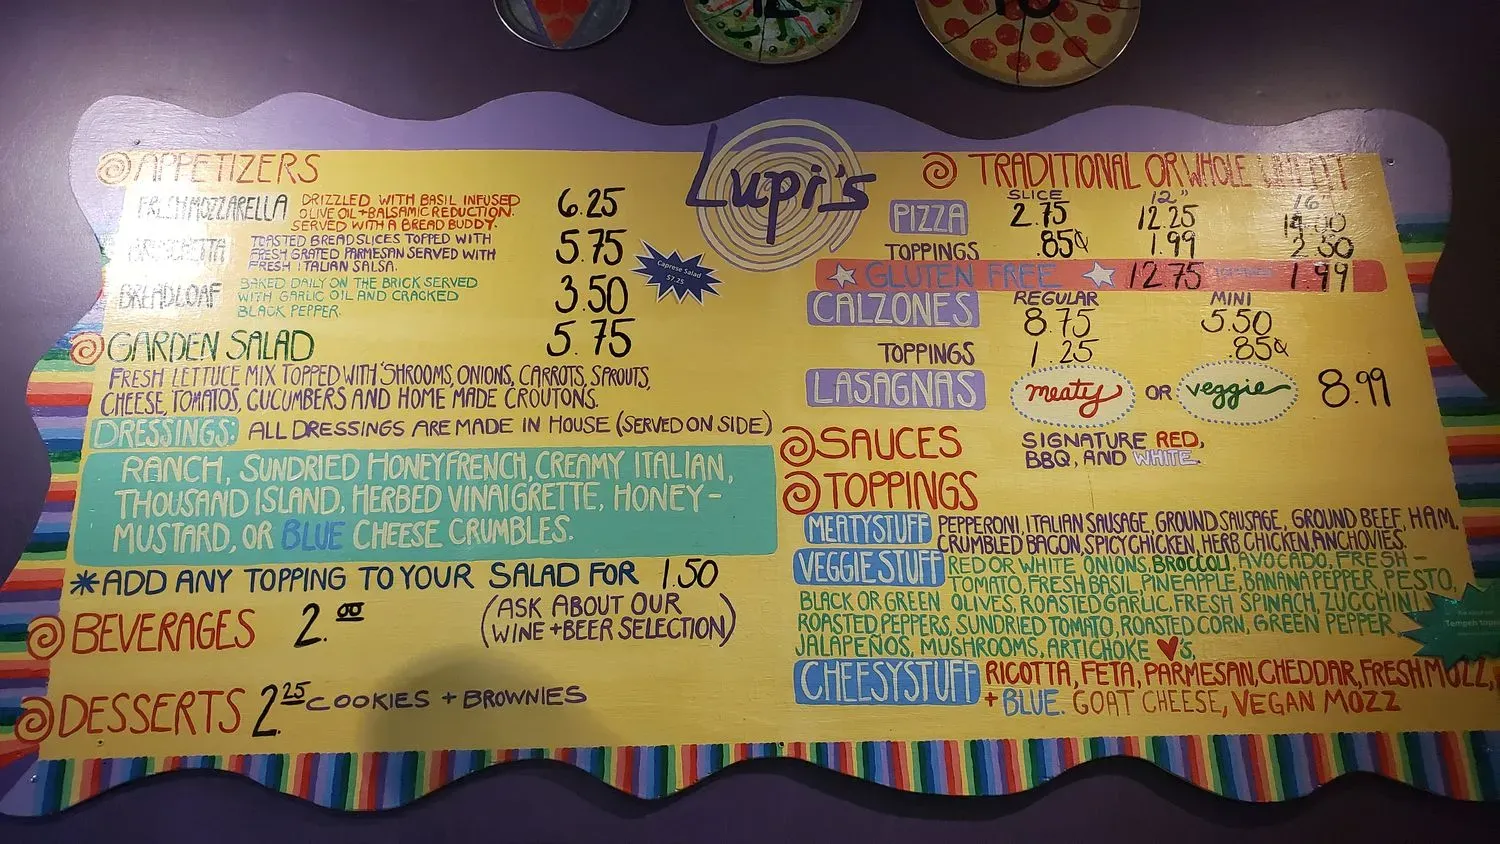 Lupi's
APPETIZERS
FRESH MOZZARELLA DRIZZLED WITH BASIL INFUSED 6.25
OLIVE OIL + BALSAMIC REDUCTION.
SERVED WITH A BREAD BUDDY.
BRUSCHETTA TOASTED BREAD SLICES TOPPED WITH 5.75
FRESH GRATED PARMESAN SERVED WITH
FRESH ITALIAN SALSA.
BREADLOAF BAKED DAILY ON THE BRICK SERVED 3.50
WITH GARLIC OIL AND CRACKED
BLACK PEPPER.
Caprese Salad
$7.25
GARDEN SALAD 5.75
FRESH LETTUCE MIX TOPPED WITH 'SHROOMS, ONIONS, CARROTS, SPROUTS,
CHEESE, TOMATOS, CUCUMBERS AND HOME MADE CROUTONS.
DRESSINGS: ALL DRESSINGS ARE MADE IN HOUSE (SERVED ON SIDE)
RANCH, SUNDRIED HONEY FRENCH, CREAMY ITALIAN,
THOUSAND ISLAND, HERBED VINAIGRETTE, HONEY-
MUSTARD, OR BLUE CHEESE CRUMBLES.
*ADD ANY TOPPING TO YOUR SALAD FOR 1.50
BEVERAGES 2.00 (ASK ABOUT OUR
WINE + BEER SELECTION)
DESSERTS 2.25 COOKIES + BROWNIES
TRADITIONAL OR WHOLE WHEAT
SLICE 12" 16"
PIZZA 2.75 12.25
TOPPINGS .85¢ 1.99 2.50
GLUTEN FREE 12.75 1.99
CALZONES REGULAR MINI
8.75 5.50
TOPPINGS 1.25 .85¢
LASAGNAS meaty OR veggie 8.99
SAUCES SIGNATURE RED,
BBQ, AND WHITE.
TOPPINGS
MEATYSTUFF PEPPERONI, ITALIAN SAUSAGE, GROUND SAUSAGE, GROUND BEEF, HAM,
CRUMBLED BACON, SPICY CHICKEN, HERB CHICKEN, ANCHOVIES.
VEGGIESTUFF RED OR WHITE ONIONS, BROCCOLI, AVOCADO, FRESH-
TOMATO, FRESH BASIL, PINEAPPLE, BANANA PEPPER, PESTO,
BLACK OR GREEN OLIVES, ROASTED GARLIC, FRESH SPINACH, ZUCCHINI
ROASTED PEPPERS, SUNDRIED TOMATO, ROASTED CORN, GREEN PEPPER
JALAPEÑOS, MUSHROOMS, ARTICHOKE ♥'s,
Tempeh
CHEESYSTUFF RICOTTA, FETA, PARMESAN, CHEDDAR, FRESH MOZZ,
+ BLUE. GOAT CHEESE, VEGAN MOZZ